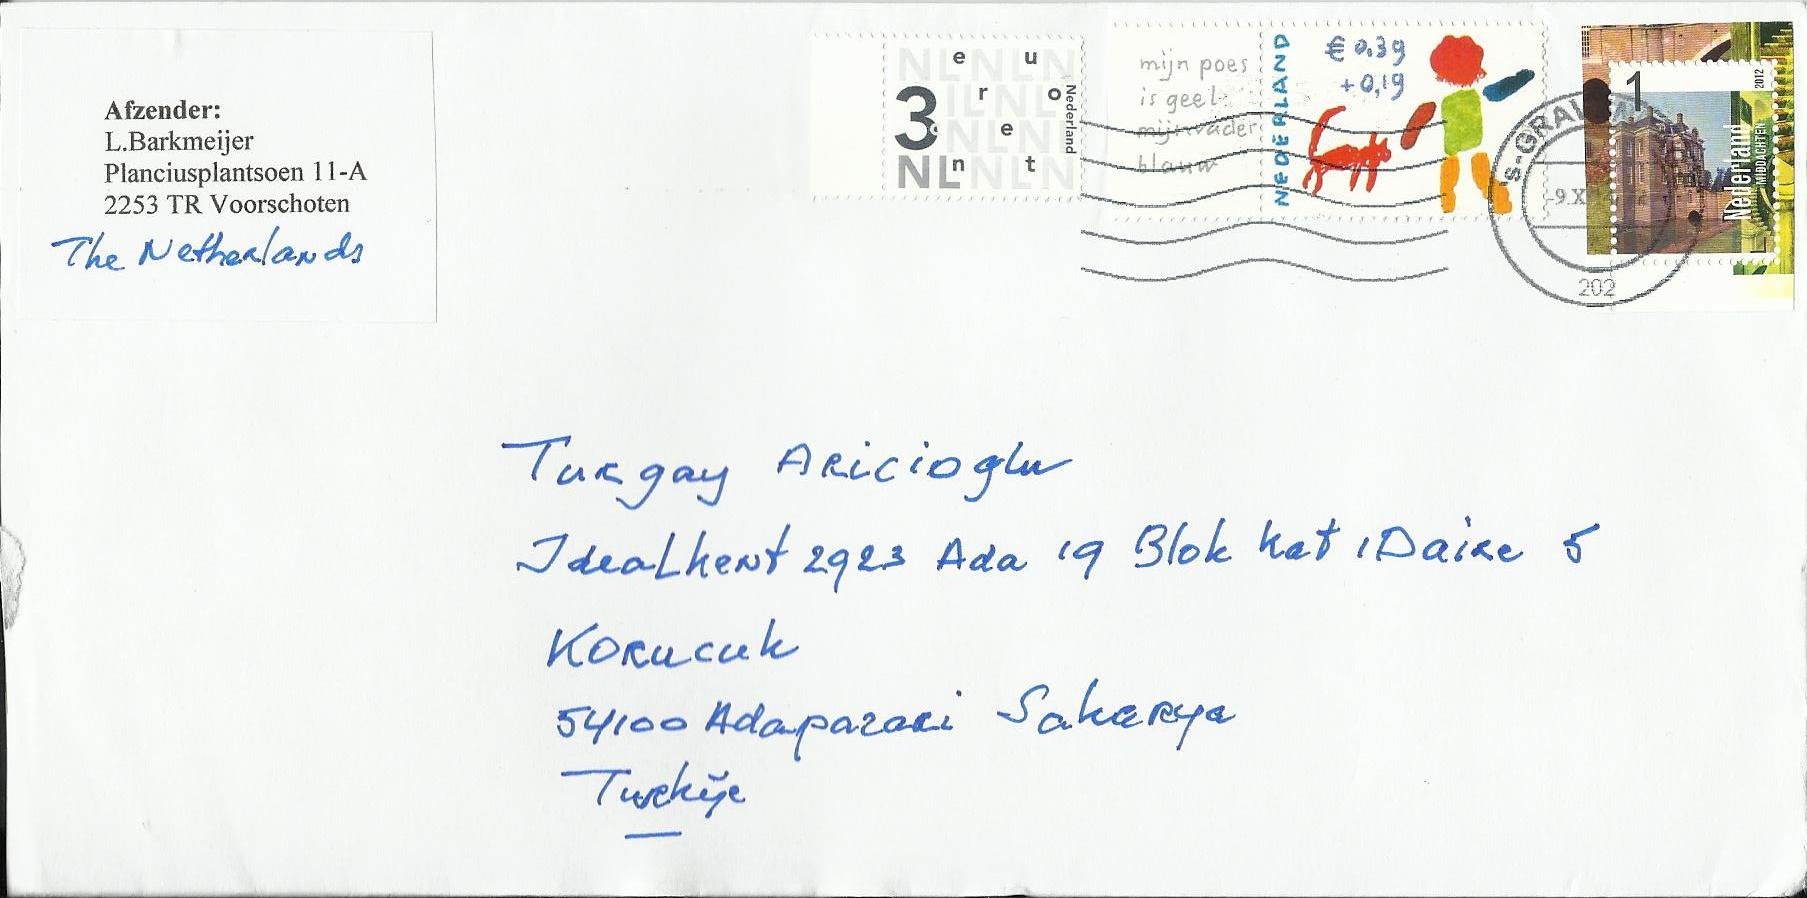 Afzender:
L.Barkmeijer
Planciusplantsoen 11-A
2253 TR Voorschoten
The Netherlands
NLNLNLN
3
euro
cent
NL
Nederland
mijn poes
is geel
mijn vader
blauw
NEDERLAND
€ 0,39
+0,19
1
2012
Nederland
MIDDACHTEN
'S-GRAV
-9.X
202
Turgay Aricioglu
Idealkent 2923 Ada 19 Blok kat 1 Daire 5
Korucuk
54100 Adapazari Sakarya
Turkije